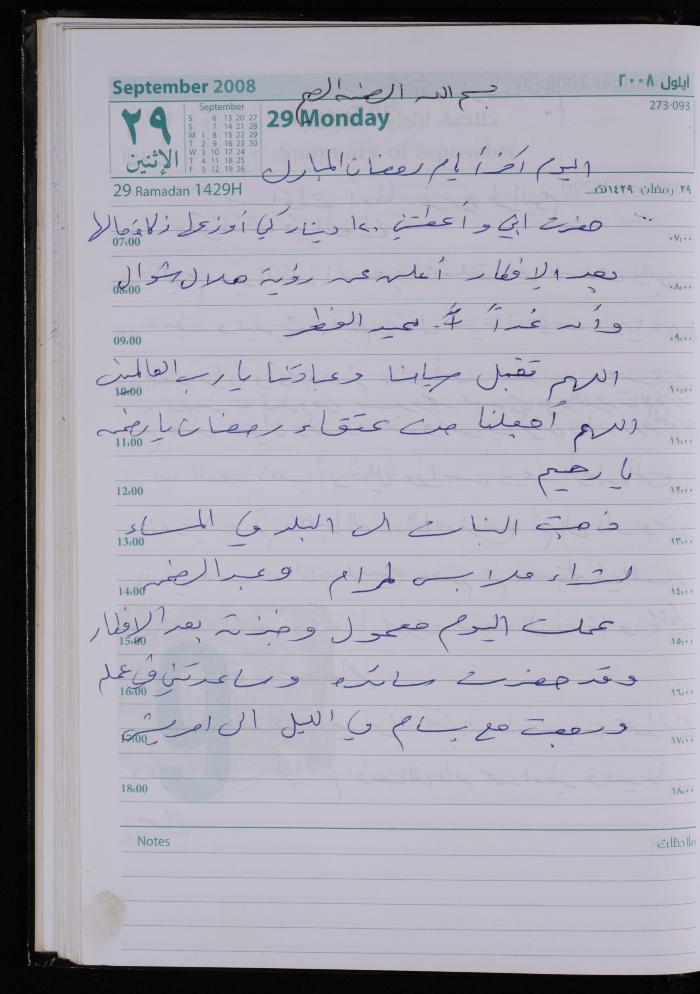 September 2008
أيلول ٢٠٠٨
بسم الله الرحمن الرحيم
٢٩
الإثنين
September
S 6 13 20 27
S 7 14 21 28
M 1 8 15 22 29
T 2 9 16 23 30
W 3 10 17 24
T 4 11 18 25
F 5 12 19 26
29 Monday
273-093
اليوم آخر أيام رمضان المبارك
29 Ramadan 1429H
٢٩ رمضان ١٤٢٩هـ
حضرت ابي وأعطتني ١٢٠ دينار كي أوزعها زكاة مالها
07:00 ٠٧:٠٠
بعد الإفطار أعلن عن رؤية هلال شوال
08:00 ٠٨:٠٠
وأن غداً عيد الفطر
09:00 ٠٩:٠٠
اللهم تقبل صيامنا وعبادتنا يا رب العالمين
10:00 ١٠:٠٠
اللهم أجعلنا من عتقاء رمضان يا رحمن
11:00 ١١:٠٠
يا رحيم
12:00 ١٢:٠٠
ذهبت البنات الى البلد في المساء
13:00 ١٣:٠٠
لشراء ملابس لمرام وعبد الرحمن
14:00 ١٤:٠٠
عملت اليوم معمول وخبزته بعد الإفطار
15:00 ١٥:٠٠
وقد حضرت سائده وساعدتني في عمله
16:00 ١٦:٠٠
ورجعت مع بسام في الليل الى
17:00 ١٧:٠٠
18:00 ١٨:٠٠
Notes
ملاحظات